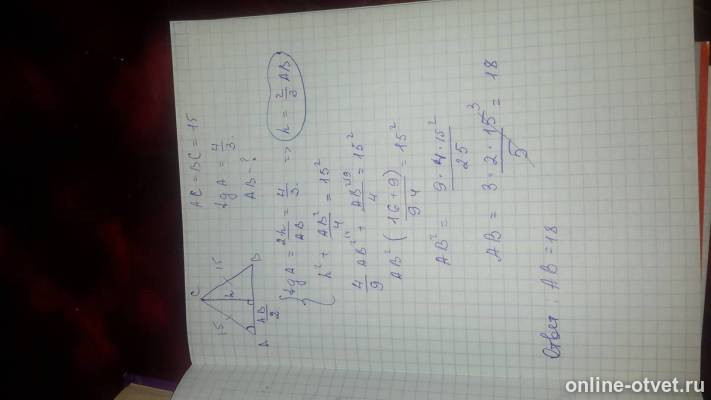 AC = BC = 15
tg A = 4/3.
AB - ?
C
15
15
h
A
B
AB/2
{ tg A = 2h/AB = 4/3. => h = 2/3 AB
h² + AB²/4 = 15²
4/9 AB² + AB²/4 = 15²
AB² ( 16 + 9 / 9·4 ) = 15²
AB² = 9·4·15² / 25
AB = 3·2·15 3 / 5 = 18
Ответ: AB = 18
online-otvet.ru